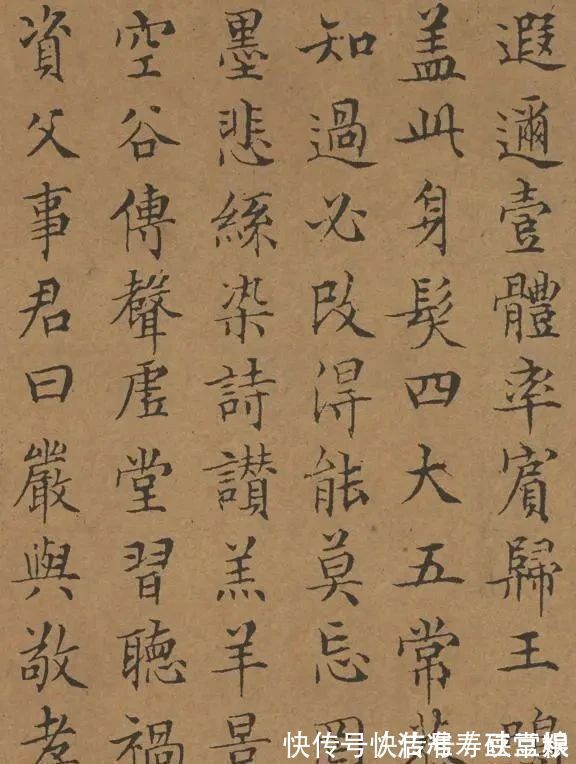 遐邇壹體率賓歸王
盖此身髮四大五常
知過必改得能莫忘
墨悲絲染詩讃羔羊景
空谷傳聲虛堂習聽禍
資父事君曰嚴與敬孝
快传号